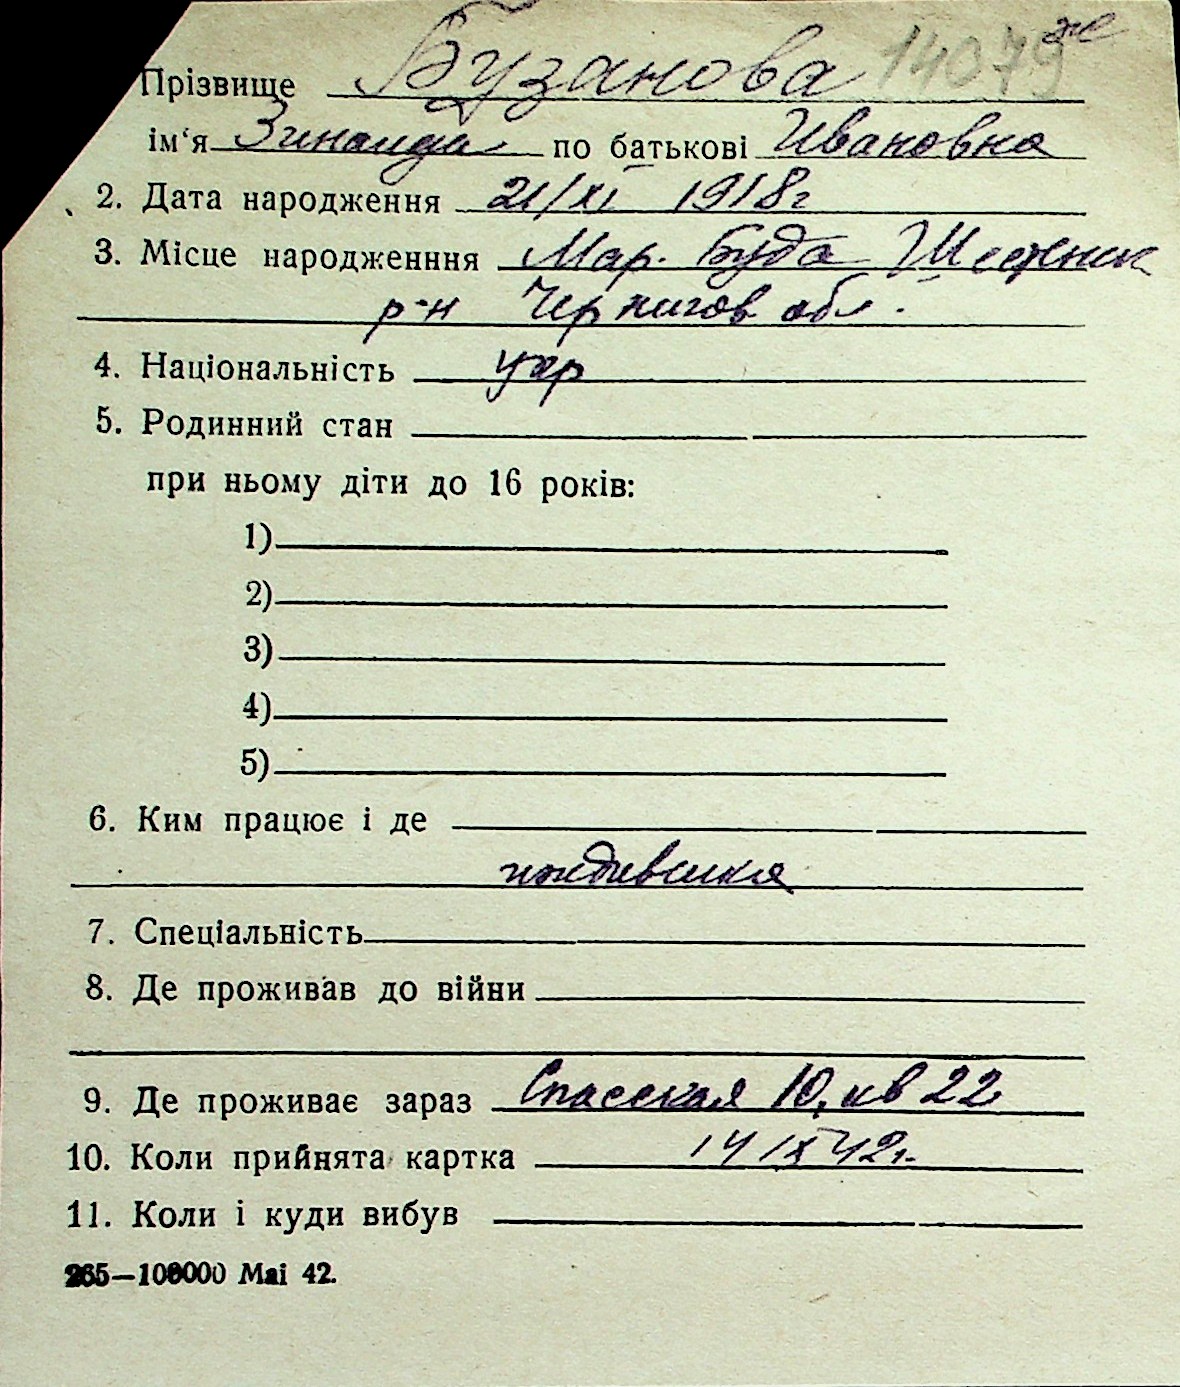 Прізвище Бузанова 14079 же
ім'я Зинаида по батькові Ивановна
2. Дата народження 21/XI 1918г
3. Місце народженння Мар. Буда
р-н Чернигов обл.
4. Національність укр
5. Родинний стан
при ньому діти до 16 років:
1)
2)
3)
4)
5)
6. Ким працює і де
иждивенка
7. Спеціальність
8. Де проживав до війни
9. Де проживає зараз Спасская 10, кв 22
10. Коли прийнята картка 14 IX 42г.
11. Коли і куди вибув
265—100000 Mai 42.